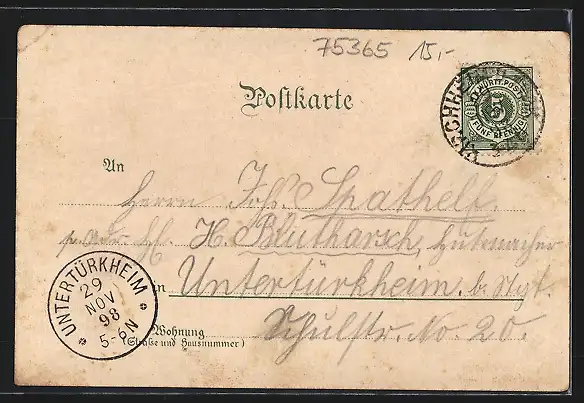 75365 15,-
Postkarte
K. WÜRTT. POST
5
FÜNF PFENNIG
KIRCHHEIM
An
Herrn Joh. Spathelf
H. Blutharsch, Hutmacher
in Untertürkheim b. Stgt.
Wohnung Schulstr. No. 20.
(Straße und Hausnummer)
UNTERTÜRKHEIM
29
NOV
98
5-6N